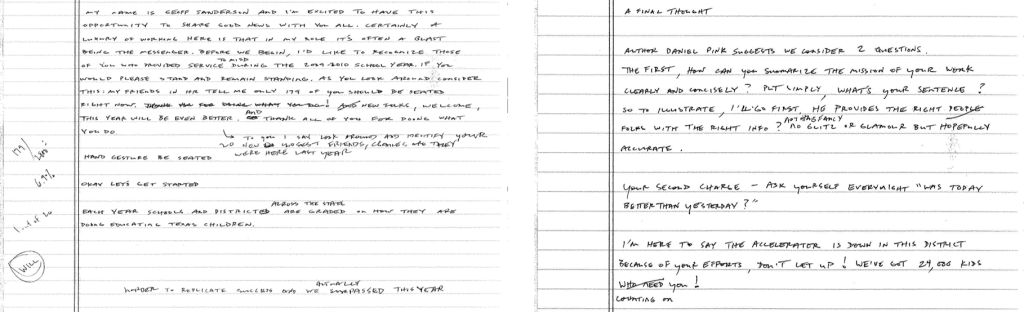 MY NAME IS GEOFF SANDERSON AND I'M EXCITED TO HAVE THIS
OPPORTUNITY TO SHARE GOOD NEWS WITH YOU ALL. CERTAINLY A
LUXURY OF WORKING HERE IS THAT IN MY ROLE IT'S OFTEN A BLAST
BEING THE MESSENGER. BEFORE WE BEGIN, I'D LIKE TO RECOGNIZE THOSE
TO MISD
OF YOU WHO PROVIDED SERVICE DURING THE 2009-2010 SCHOOL YEAR. IF YOU
WOULD PLEASE STAND AND REMAIN STANDING. AS YOU LOOK AROUND CONSIDER
THIS: MY FRIENDS IN HR TELL ME ONLY 179 OF YOU SHOULD BE SEATED
RIGHT NOW. THANK YOU FOR DOING WHAT YOU DO! AND NEW FOLKS, WELCOME,
AND
THIS YEAR WILL BE EVEN BETTER. THANK ALL OF YOU FOR DOING WHAT
YOU DO
TO YOU I SAY LOOK AROUND AND IDENTIFY YOUR
20 NEW CLOSEST FRIENDS, CHANCES ARE THEY
WERE HERE LAST YEAR
HAND GESTURE BE SEATED
179
6.9%
1 ... 1 of 20
WILL
OKAY LET'S GET STARTED
ACROSS THE STATE
EACH YEAR SCHOOLS AND DISTRICTS ARE GRADED ON HOW THEY ARE
DOING EDUCATING TEXAS CHILDREN.
ACTUALLY
HARDER TO REPLICATE SUCCESS AND WE SURPASSED THIS YEAR
A FINAL THOUGHT
AUTHOR DANIEL PINK SUGGESTS WE CONSIDER 2 QUESTIONS.
THE FIRST, HOW CAN YOU SUMMARIZE THE MISSION OF YOUR WORK
CLEARLY AND CONCISELY? PUT SIMPLY, WHAT'S YOUR SENTENCE?
SO TO ILLUSTRATE, I'LL GO FIRST, HE PROVIDES THE RIGHT PEOPLE
FOLKS WITH THE RIGHT INFO? NO GLITZ OR GLAMOUR BUT HOPEFULLY
ACCURATE.
YOUR SECOND CHARGE - ASK YOURSELF EVERY NIGHT "WAS TODAY
BETTER THAN YESTERDAY?"
I'M HERE TO SAY THE ACCELERATOR IS DOWN IN THIS DISTRICT
BECAUSE OF YOUR EFFORTS, DON'T LET UP! WE'VE GOT 24,000 KIDS
WHO NEED YOU!
COUNTING ON